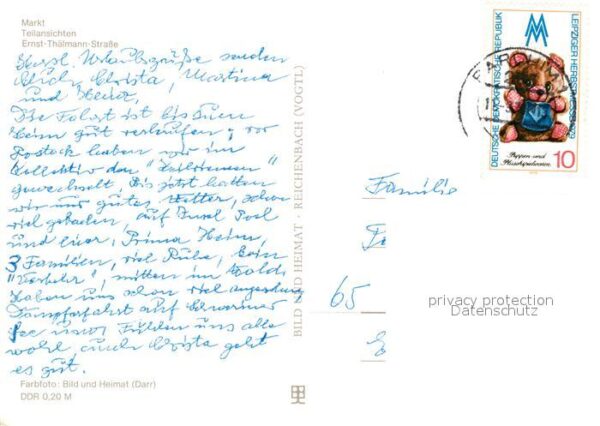 Markt
Teilansichten
Ernst-Thälmann-Straße
Herzl. Urlaubsgrüße senden
Euch Christa, Martina
und Heinz,
Die Fahrt ist bis zum
Heim gut verlaufen, vor
Rostock haben wir im
Kollektiv den
gewechselt, Bis jetzt hatten
wir nur gutes Wetter, schon
viel gebadet, auf Insel Poel
und hier, Prima Heim,
3 Familien, viel Ruhe, kein
"Verkehr", mitten im Wald.
Haben uns schon viel angeschaut
Dampferfahrt auf Schweriner
See usw. Fühlen uns alle
wohl, auch Christa geht
es gut.
Farbfoto: Bild und Heimat (Darr)
DDR 0,20 M
BILD UND HEIMAT · REICHENBACH (VOGTL)
Familie
65
privacy protection
Datenschutz
DEUTSCHE DEMOKRATISCHE REPUBLIK
LEIPZIGER HERBSTMESSE 1982
Puppen und
Plüschspielwaren
10